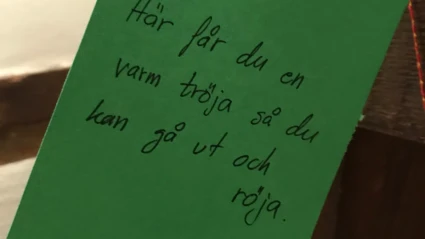 Här får du en
varm tröja så du
kan gå ut och
röja.